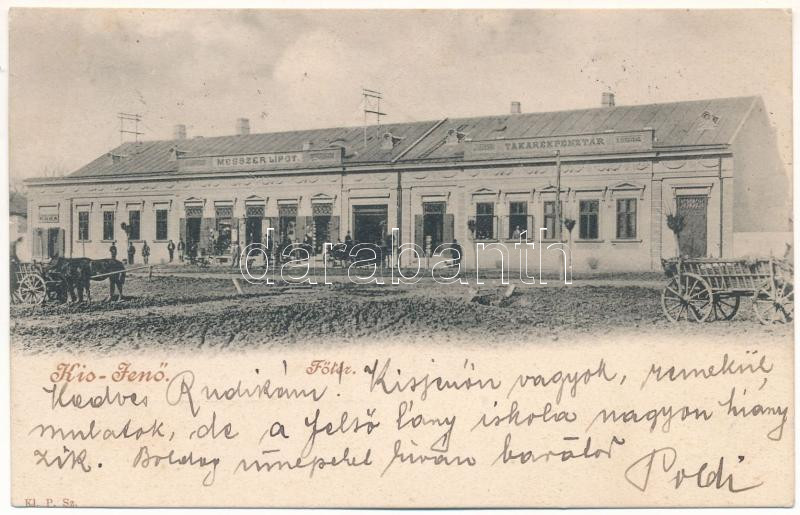 MESSZER LIPÓT.
TAKARÉKPÉNZTÁR
darabanth
Kis-Jenő.
Főtér.
Kedves Rudikám! Kisjenőn vagyok, remekül
mulatok, de a felső lány iskola nagyon hiány
zik. Boldog ünnepelet kíván barátod
Poldi
Kl. P. Sz.